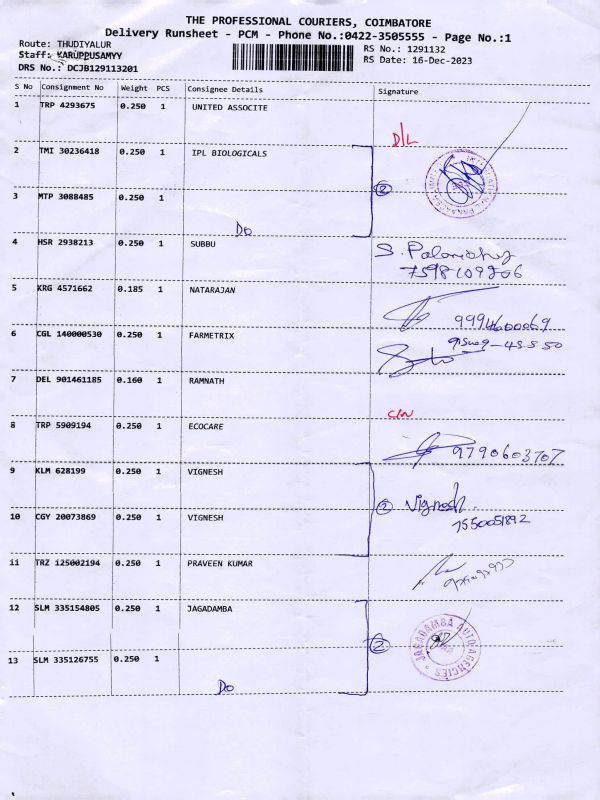 THE PROFESSIONAL COURIERS, COIMBATORE
Delivery Runsheet - PCM - Phone No.:0422-3505555 - Page No.:1
Route: THUDIYALUR
RS No.: 1291132
Staff: KARUPPUSAMYY
RS Date: 16-Dec-2023
DRS No.: DCJB129113201
S No Consignment No Weight PCS Consignee Details Signature
1 TRP 4293675 0.250 1 UNITED ASSOCITE
D/L
2 TMI 30236418 0.250 1 IPL BIOLOGICALS
2
3 MTP 3088485 0.250 1
Do
4 HSR 2938213 0.250 1 SUBBU
7598109206
5 KRG 4571662 0.185 1 NATARAJAN
6 CGL 140000530 0.250 1 FARMETRIX
7 DEL 901461185 0.160 1 RAMNATH
8 TRP 5909194 0.250 1 ECOCARE
9790603707
9 KLM 628199 0.250 1 VIGNESH
2 Vignesh
7550051892
10 CGY 20073869 0.250 1 VIGNESH
11 TRZ 125002194 0.250 1 PRAVEEN KUMAR
12 SLM 335154805 0.250 1 JAGADAMBA
2
JAGADAMBA AUTO AGENCIES
13 SLM 335126755 0.250 1
Do